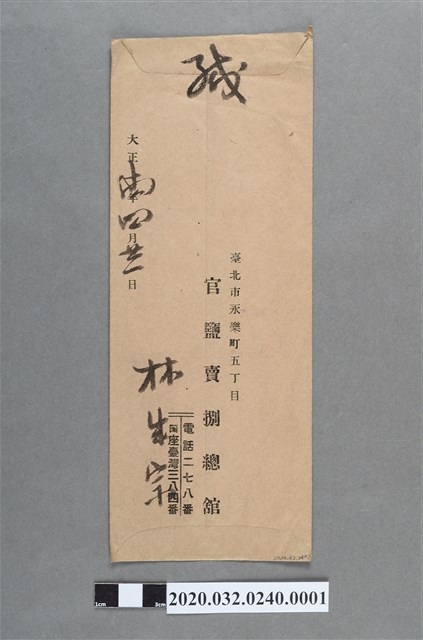 緘
臺北市永樂町五丁目
官鹽賣捌總館
電話二七八番
座臺灣三八四番
林
大正年四月日
1cm 3cm
2020.032.0240.0001